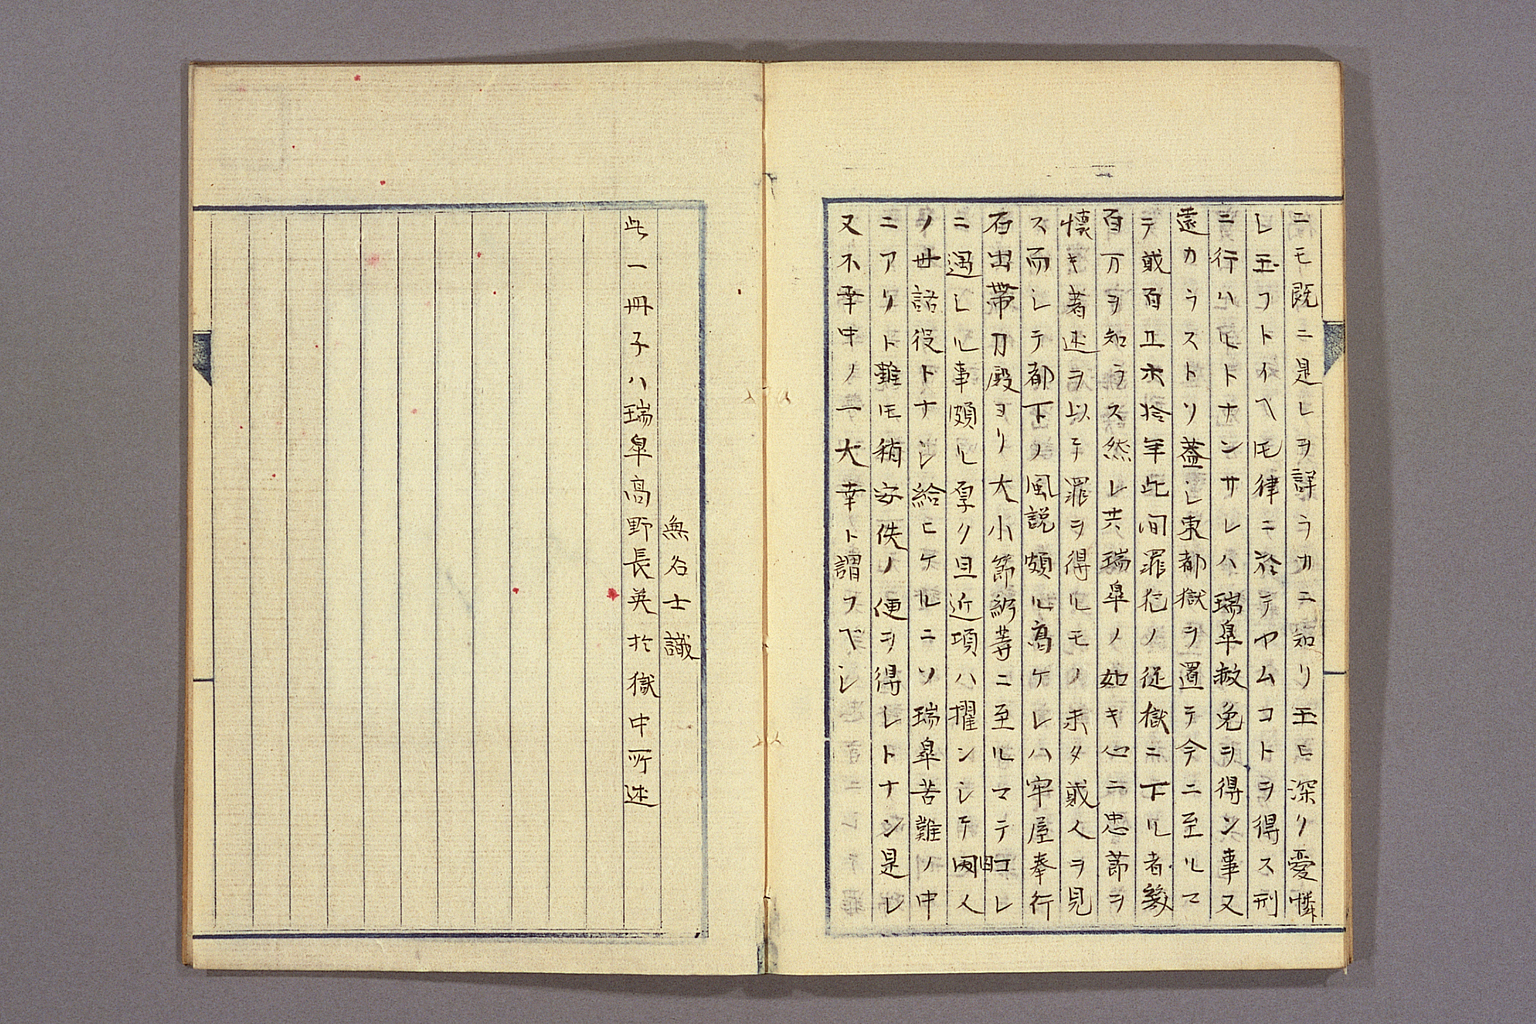 ニモ既ニ是レヲ詳ラカニ知リ玉ヒ深ク愛憐
レ玉フトイヘ𪜈律ニ於テヤムコトヲ得ス刑
ニ行ハルトナンサレハ瑞皐赦免ヲ得ン事又
遠カラストソ蓋シ東都獄ヲ置テ今ニ至ルマ
テ或百五六拾年此間罪犯ノ従獄ニ下ル者幾
百万ヲ知ラス然レ共瑞皐ノ如キ心ニ忠節ヲ
懐キ著述ヲ以テ罪ヲ得ルモノ未タ或人ヲ見
ス而シテ都下ノ風説頗ル高ケレハ牢屋奉行
石出帯刀殿ヨリ大小節級等ニ至ルマテコレ
ニ遇シル事頗ル厚ク且近項ハ擢ンシテ囚人
ノ世話役トナシ給ヒケルニソ瑞皐苦難ノ中
ニアリト雖モ稍安佚ノ便ヲ得レトナン是レ
又不幸中ノ一大幸ト謂フベシ
無名士識
此一冊子ハ瑞皐高野長英於獄中所述